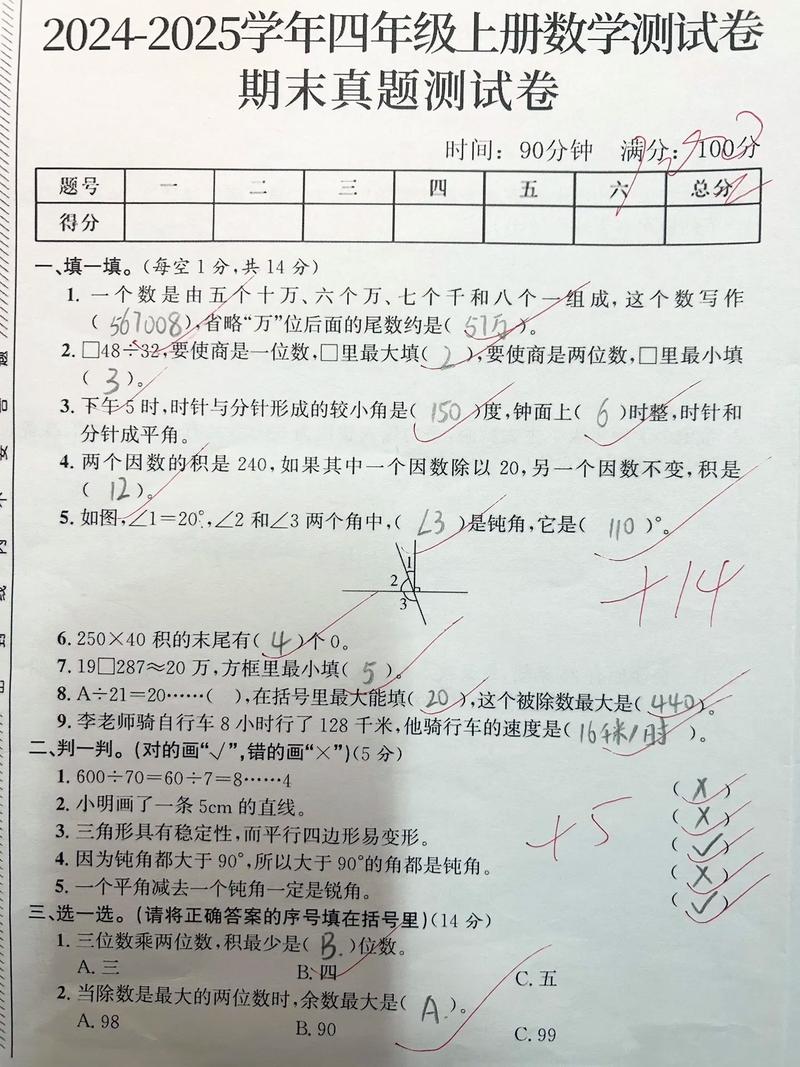 2024-2025学年四年级上册数学测试卷
期末真题测试卷
时间：90分钟 满分：100分
题号 一 二 三 四 五 六 总分
得分
一、填一填。(每空1分,共14分)
1. 一个数是由五个十万、六个万、七个千和八个一组成,这个数写作
( 567008 ),省略“万”位后面的尾数约是( 57万 )。
2. □48÷32,要使商是一位数,□里最大填( 2 ),要使商是两位数,□里最小填
( 3 )。
3. 下午5时,时针与分针形成的较小角是( 150 )度,钟面上( 6 )时整,时针和
分针成平角。
4. 两个因数的积是240,如果其中一个因数除以20,另一个因数不变,积是
( 12 )。
5. 如图,∠1=20°,∠2和∠3两个角中,( ∠3 )是钝角,它是( 110 )°。
1
2
3
+14
6. 250×40积的末尾有( 4 )个0。
7. 19□287≈20万,方框里最小填( 5 )。
8. A÷21=20……( ),在括号里最大能填( 20 ),这个被除数最大是( 440 )。
9. 李老师骑自行车8小时行了128千米,他骑行车的速度是( 16千米/时 )。
二、判一判。(对的画“√”,错的画“×”)(5分)
1. 600÷70=60÷7=8……4 ( × )
2. 小明画了一条5cm的直线。 ( × )
3. 三角形具有稳定性,而平行四边形易变形。 ( √ )
+5
4. 因为钝角都大于90°,所以大于90°的角都是钝角。 ( × )
5. 一个平角减去一个钝角一定是锐角。 ( √ )
三、选一选。(请将正确答案的序号填在括号里)(14分)
1. 三位数乘两位数,积最少是( B. )位数。
A. 三 B. 四 C. 五
2. 当除数是最大的两位数时,余数最大是( A. )。
A. 98 B. 90 C. 99